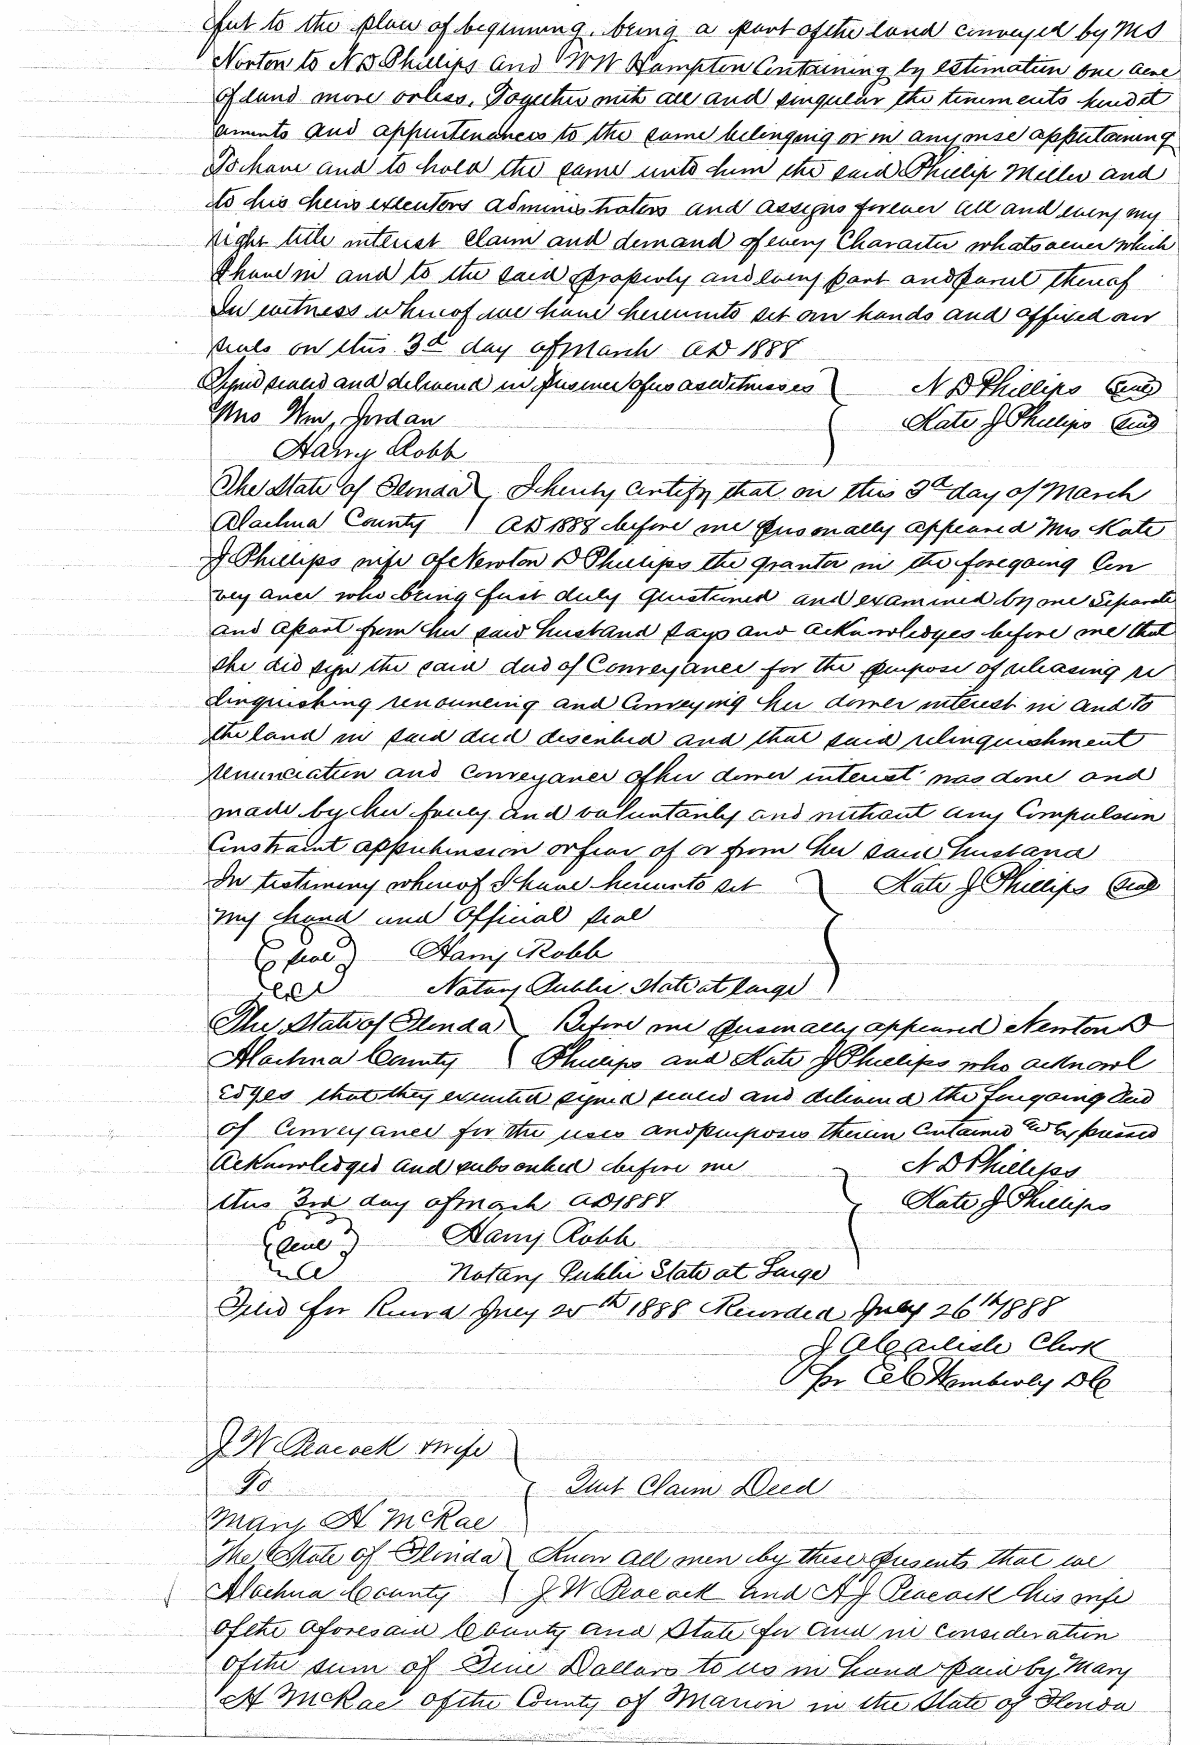 feet to the place of beginning, being a part of the land conveyed by M S
Norton to N D Phillips and W W Hampton Containing by estimation one acre
of land more or less, Together with all and singular the tenements heredit
aments and appurtenances to the same belonging or in anywise appertaining
To have and to hold the same unto him the said Phillip Miller and
to his heirs executors administrators and assigns forever all and every my
right title interest claim and demand of every Character whatsoever which
I have in and to the said property and every part and parcel thereof
In witness whereof we have hereunto set our hands and affixed our
seals on this 3d day of March AD 1888
Signed sealed and delivered in presence of us as witnesses } N D Phillips (Seal)
Mrs Wm, Jordan } Kate J Phillips (Seal)
Harry Robb
The State of Florida } I hereby certify that on this 3d day of March
Alachua County } AD 1888 before me personally appeared Mrs Kate
J Phillips wife of Newton D Phillips the grantor in the foregoing Con
veyance who being first duly questioned and examined by me Separate
and apart from her said husband says and acknowledges before me that
she did sign the said deed of Conveyance for the purpose of releasing re
linquishing renouncing and Conveying her dower interest in and to
the land in said deed described and that said relinquishment
renunciation and conveyance of her dower interest was done and
made by her freely and voluntarily and without any Compulsion
Constraint apprehension or fear of or from her said husband
In testimony whereof I have hereunto set } Kate J Phillips (Seal)
my hand and Official seal
(seal) Harry Robb
Notary Public State at large
The State of Florida } Before me personally appeared Newton D
Alachua County } Phillips and Kate J Phillips who acknowl
edges that they executed signed sealed and delivered the foregoing Deed
of Conveyance for the uses and purposes therein contained & Expressed
Acknowledged and subscribed before me } N D Phillips
this 3rd day of March AD 1888 } Kate J Phillips
(Seal) Harry Robb
Notary Public State at Large
Filed for Record July 20th 1888 Recorded July 26th 1888
J A Carlisle Clerk
per Wemberly DC
J W Peacock & wife
To } Quit Claim Deed
Mary H McRae
The State of Florida } Know all men by these presents that we
Alachua County } J W Peacock and A J Peacock his wife
of the aforesaid County and State for and in consideration
of the sum of Five Dollars to us in hand paid by Mary
H McRae of the County of Marion in the State of Florida